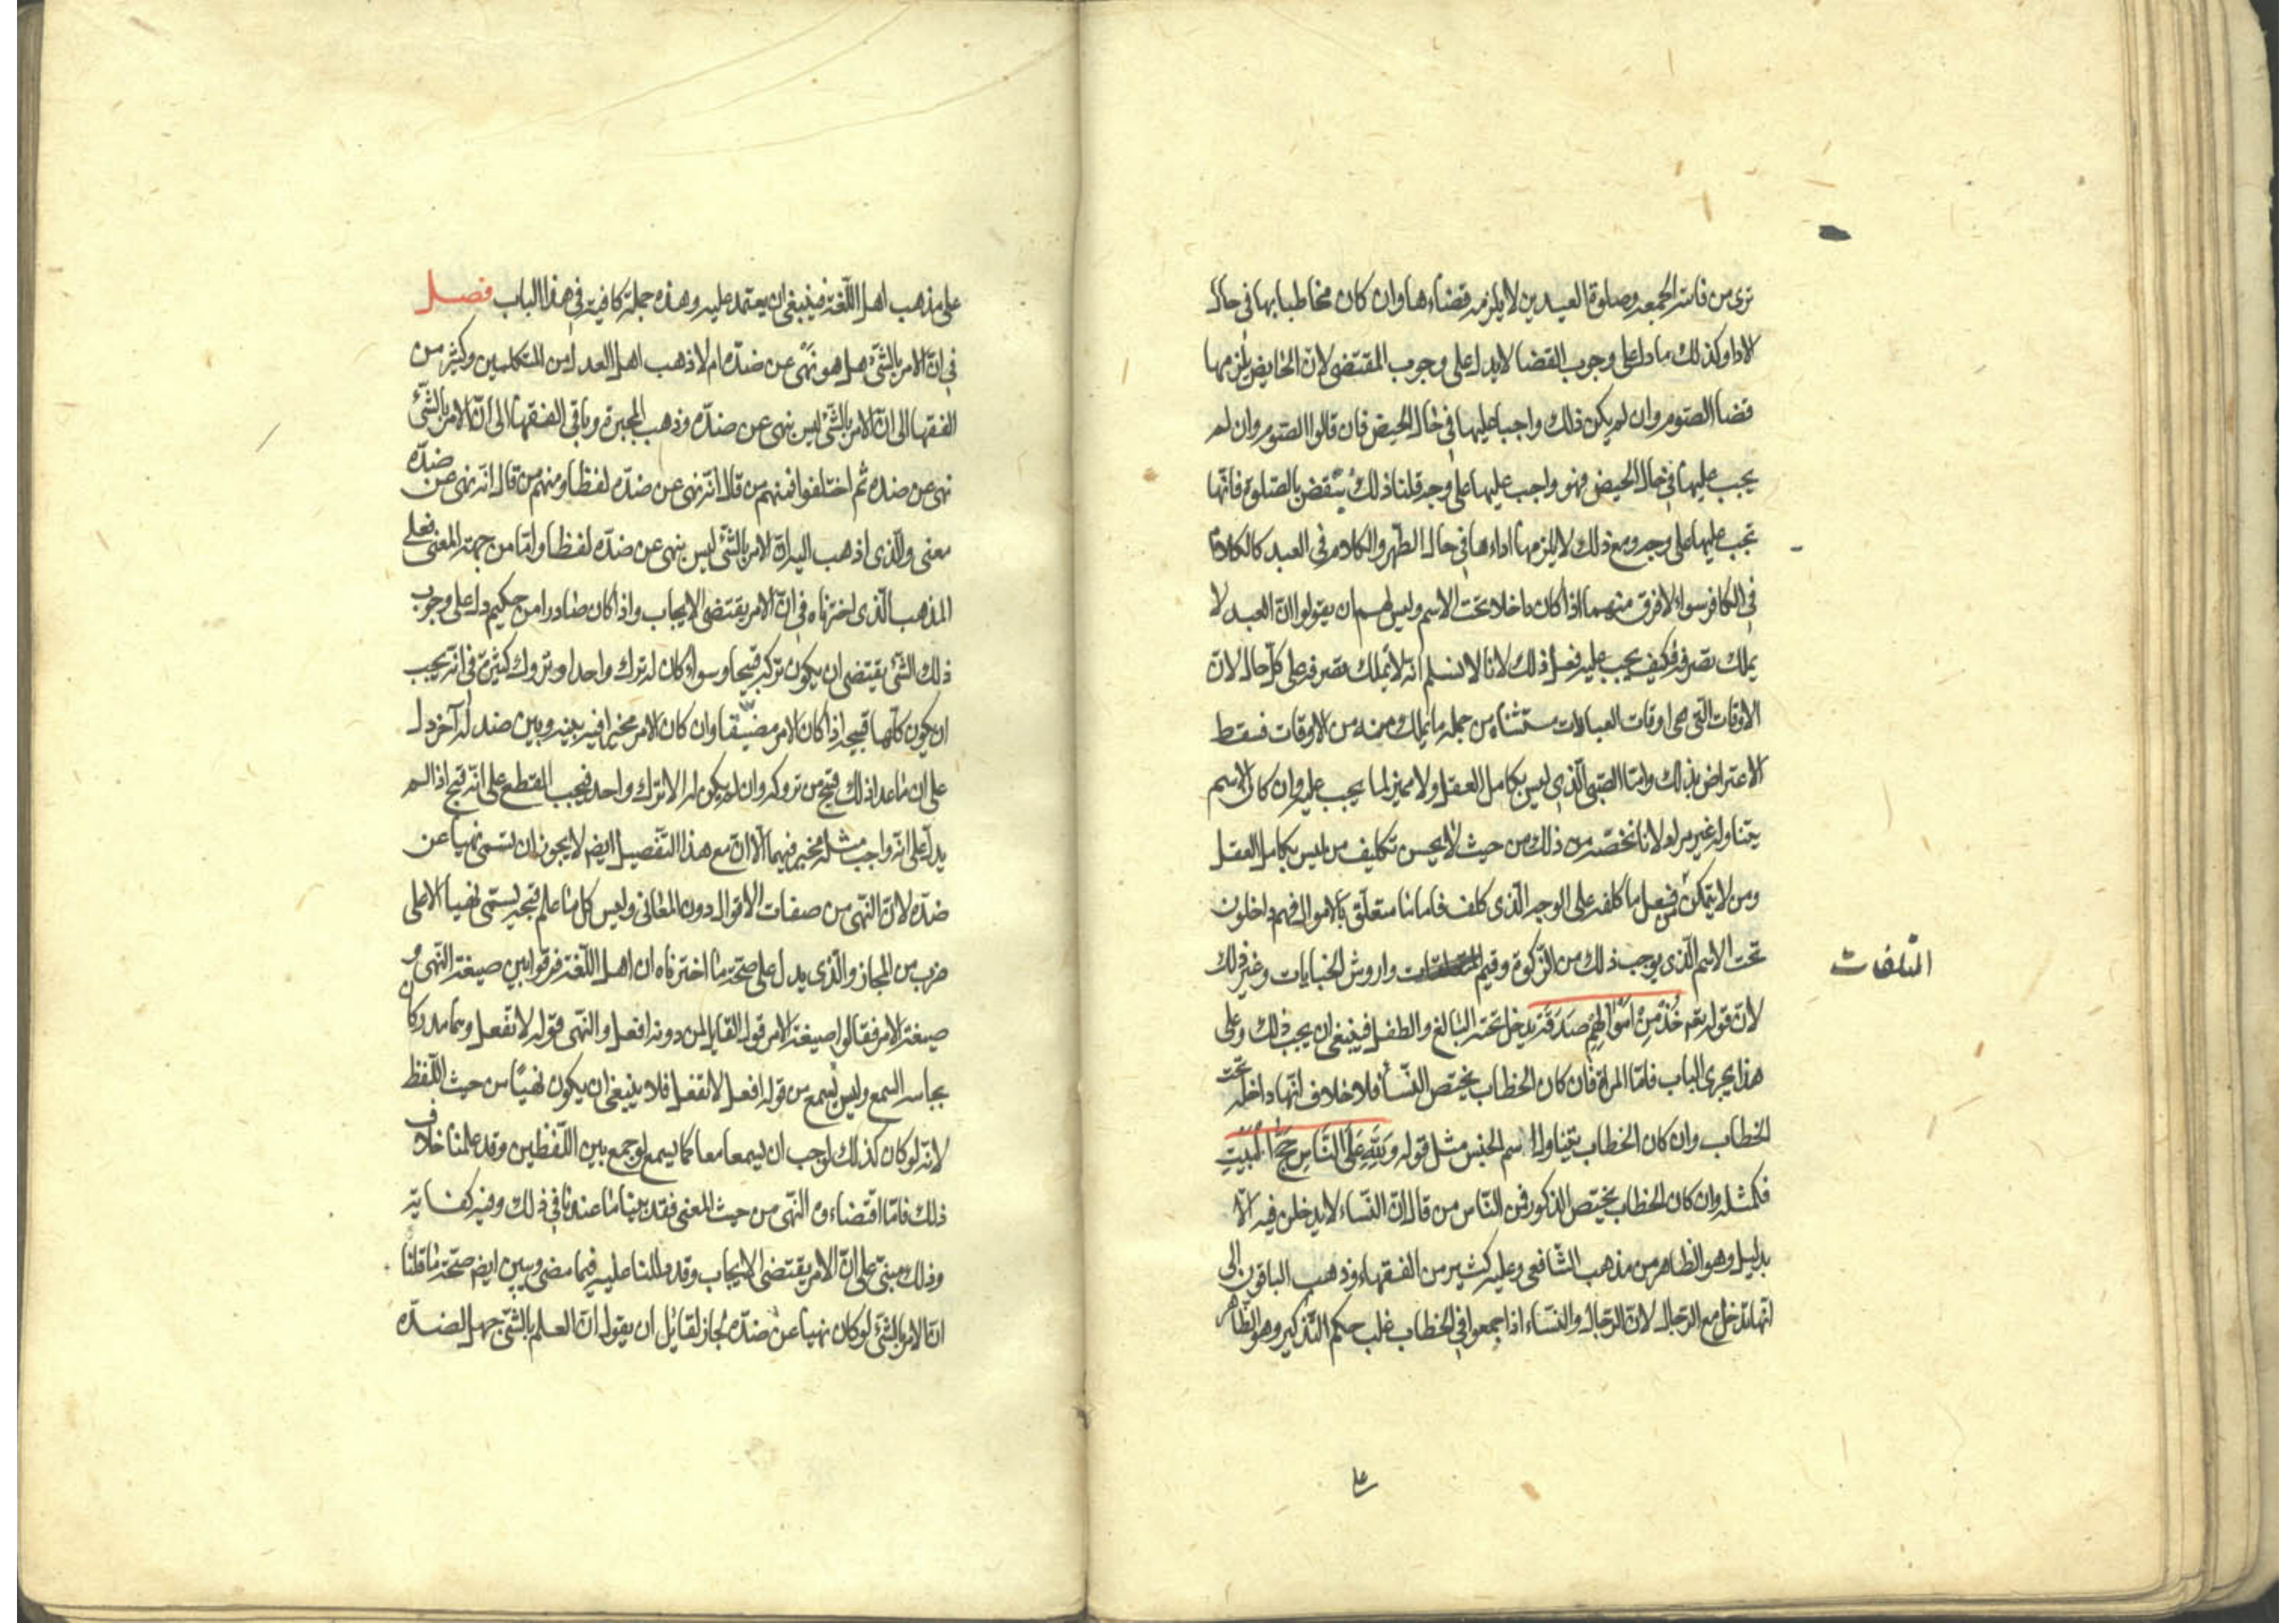 ترى من فاتته الجمعه وصلوة العيدين لا يلزمه قضاءها وان كان مخاطبا بها في حال
الاداء وكذلك ما دل على وجوب القضا لا يدل على وجوب المقتضى لان الحايض يلزمها
قضا الصوم وان لم يكن ذلك واجبا عليها في حال الحيض فان قالوا الصوم وان لم
يجب عليها في حال الحيض فهو واجب عليها على وجه قلنا ذلك ينتقض بالصلوة فانها
تجب عليها على وجه ومع ذلك لا يلزمها اداءها في حال الطهر والكلام في العبد كالكلام
في الكافر سواء لا فرق منهما اذا كان داخلا تحت الاسم وليس لهم ان يقولوا ان العبد لا
يملك تصرفه فكيف يجب عليه فعل ذلك لانا لا نسلم انه لا يملك تصرفه على كل حال لان
الاوقات التي هي اوقات العبادات مستثناه من جمله ما يملك منه من الاوقات فسقط
الاعتراض بذلك واما الصبي الذي ليس بكامل العقل ولا مميز لما يجب عليه وان كان الاسم
يتناوله غير مراد لانا نخصه من ذلك من حيث لا يحسن تكليف من ليس بكامل العقل
ومن لا يتمكن من فعل ما كلفه على الوجه الذي كلف فاما ما متعلق بالاموال فهم داخلون
تحت الاسم الذي يوجب ذلك من الزكوة وقيم واروش الجنايات وغير ذلك
المتلفات
لان قوله تعم خُذْ مِنْ اَمْوَالِهِمْ صَدَقَةً يدخل تحته البالغ والطفل فينبغي ان يجب ذلك وعلى
هذا يجرى الباب فاما المراة فان كان الخطاب يختص النساء فلا خلاف انها داخله تحت
الخطاب وان كان الخطاب يتناول اسم الجنس مثل قوله وَلِلّهِ عَلَى النَّاسِ حِجُّ الْبَيْتِ
فكمثله وان كان الخطاب يختص الذكور فمن الناس من قال ان النساء لا يدخلن فيه الا
بدليل وهو الظاهر من مذهب الشافعي وعليه كثير من الفقهاء وذهب الباقون الى
انها تدخل مع الرجال لان الرجال والنساء اذا جمعوا في الخطاب غلب حكم التذكير وهو الظاهر
على
على مذهب اهل اللّغة فينبغي ان يعتمد عليه وهذه جملة كافية في هذا الباب فصل
في ان الامر بالشئ هل هو نهي عن ضده ام لا ذهب اهل العدل من المتكلمين وكثير من
الفقها الى ان الامر بالشئ ليس بنهي عن ضده وذهب المجبرة وباقي الفقها الى ان الامر بالشئ
نهى عن ضده ثم اختلفوا فمنهم من قال انه نهى عن ضده لفظا ومنهم من قال انه نهى عن ضده
معنى والذي اذهب اليه ان الامر بالشئ ليس بنهي عن ضده لفظا واما من جهة المعنى فعلى
المذهب الذي اخترناه في ان الامر يقتضى الايجاب واذا كان صادرا من حكيم دل على وجوب
ذلك الشئ يقتضى ان يكون تركه قبيحا وسواء كان له ترك واحد او تروك كثيرة في انه يجب
ان يكون كلها قبيحه اذا كان الامر مضيقا وان كان الامر مخيرا فيه بينه وبين ضد له آخر دل
على ان ما عدا ذلك قبح من تروكه وان لم يكون له الا ترك واحد فيجب القطع على انه قبح اذا لم
يدل على انه واجب مثله مخير فيهما الا ان مع هذا التفصيل ايضم لا يجوز ان تسمى نهيا عن
ضده لان النهى من صفات الاقوال دون المعانى وليس كل ما علم قبحه يسمى نهيا الا على
ضرب من المجاز والذي يدل على صحة ما اخترناه ان اهل اللغة فرقوا بين صيغة النهى و
صيغة الامر فقالوا صيغة الامر قول القايل لمن دونه افعل والنهى قوله لا تفعل وهما مدركان
بحاسه السمع وليس يسمع من قوله افعل لا تفعل فلا ينبغي ان يكون نهيا من حيث اللّفظ
لانه لو كان كذلك لوجب ان يسمعا معا كما يسمع لو جمع بين اللّفظين وقد علمنا خلاف
ذلك فاما اقتضاءه النهى من حيث المعنى فقد بينا ما عندنا في ذلك وفيه كفاية
وذلك مبنى على ان الامر يقتضى الايجاب وقد دللنا عليه فيما مضى ويبين ايضم صحة ما قلنا
ان الامر بالشئ لو كان نهيا عن ضده لجاز لقائل ان يقول ان العلم بالشئ جهل الضده